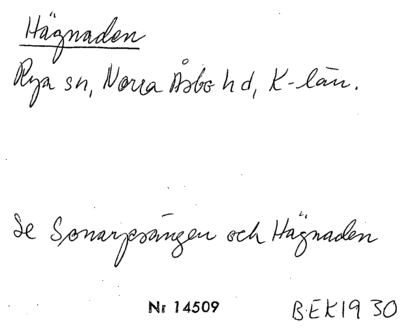 Hägnaden
Rya sn, Norra Åsbo hd, K-län.
Se Sonarpsängen och Hägnaden
Nr 14509 BEK19 30